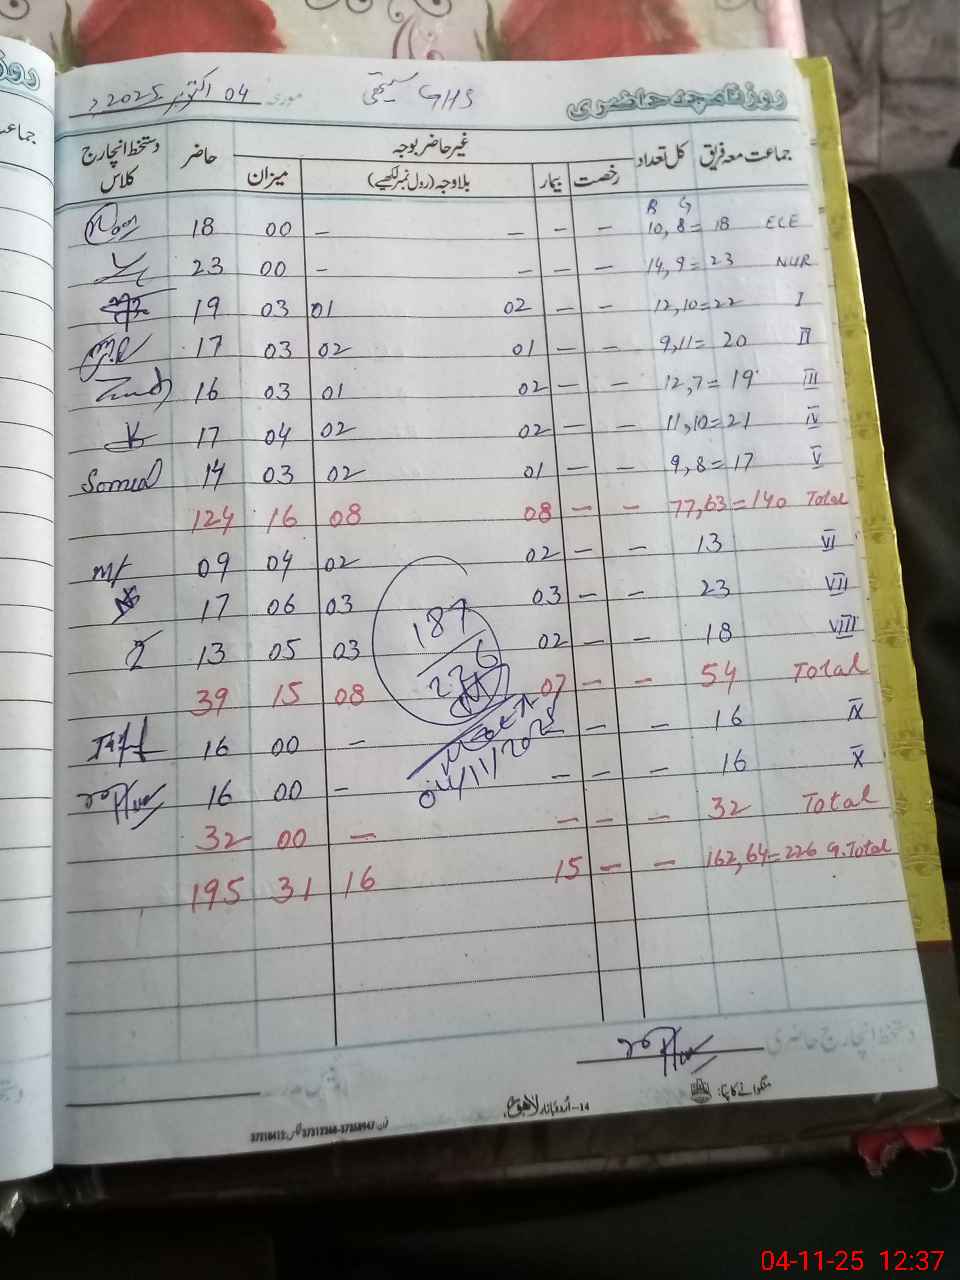 روزنامچہ حاضری GHS مورخہ 04 اکتوبر 2025ء
جماعت معہ فریق کل تعداد غیر حاضر بوجہ حاضر دستخط انچارج کلاس
رخصت بیمار بلاوجہ (رول نمبر لکھیے) میزان
B G
ECE 10, 8 = 18 – – – – 00 18
NUR 14, 9 = 23 – – – – 00 23
I 12, 10 = 22 – – 02 01 03 19
II 9, 11 = 20 – – 01 02 03 17
III 12, 7 = 19 – – 02 01 03 16
IV 11, 10 = 21 – – 02 02 04 17
V 9, 8 = 17 – – 01 02 03 14
Total 77, 63 = 140 – – 08 08 16 124
VI 13 – – 02 02 04 09
VII 23 – – 03 03 06 17
VIII 18 – – 02 03 05 13
Total 54 – – 07 08 15 39
IX 16 – – – 00 16
X 16 – – – – 00 16
Total 32 – – – – 00 32
G.Total 162, 64 = 226 – – 15 16 31 195
187
226
04/11/2025
دستخط انچارج حاضری
منگوانے کا پتہ:
14-اُردو بازار لاہور
04-11-25 12:37